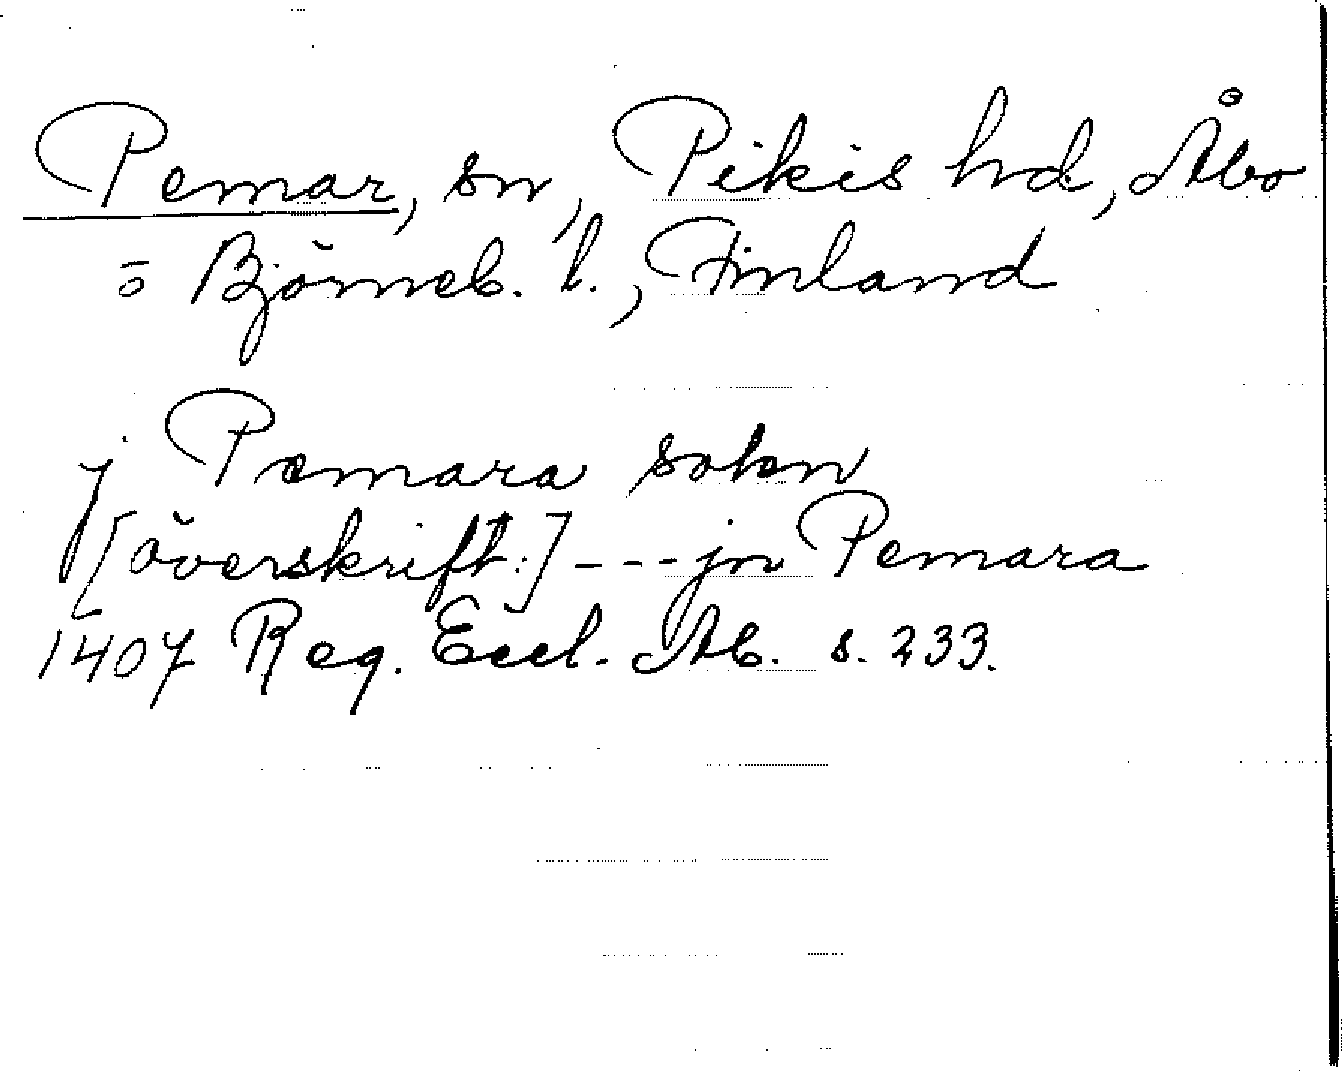 Pemar, sn, Pikis hd, Åbo
o Björneb. l., Finland
j Pemara sokn
[överskrift:] --- jn Pemara
1407 Reg. Eccl. Ab. s. 233.